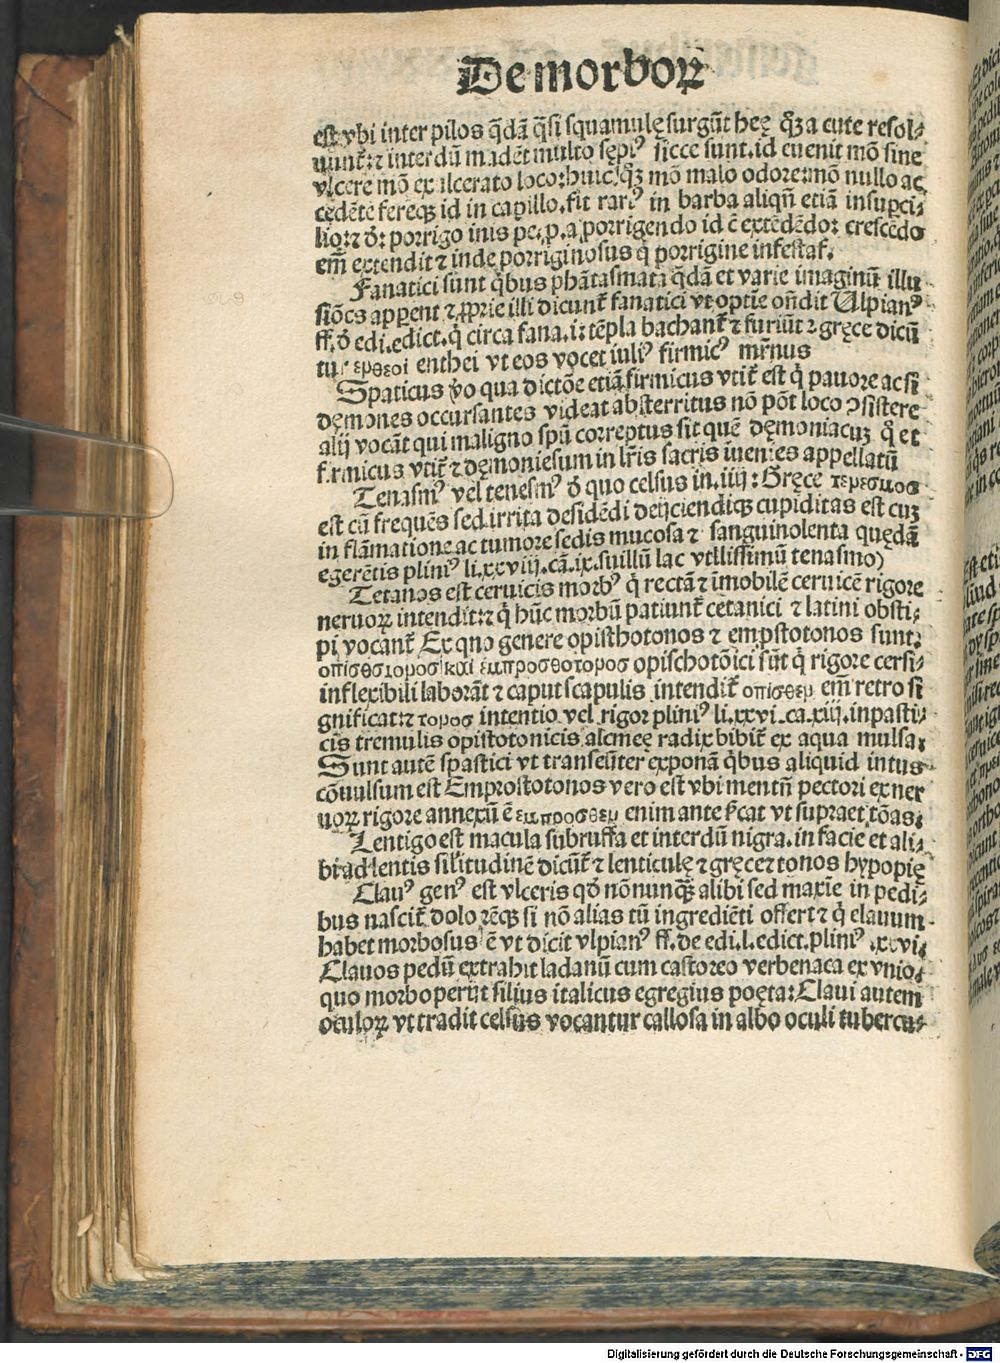 De morboꝝ
est vbi inter pilos q̄dā q̄si squamulę surgūt heę q̄ꝫ a cute resol⸗
uunt̄: ⁊ interdū madēt multo sępiꝰ sicce sunt. id euenit mō sine
vlcere mō ex vlcerato loco: huic q̄ꝫ mō malo odore: mō nullo ac
cedēte fereq̄ꝫ id in capillo. fit rariꝰ in barba aliqn̄ etiā in supci⸗
lio: ⁊ dr̄: porrigo inis pe. ꝓ. a porrigendo id ē extēdēdo: crescēdo
em̄ extendit ⁊ inde porriginosus q̄ porrigine infestaſ.
Fanatici sunt q̄bus phātasmata q̄dā et varie imaginū illu
siōes apparent ⁊ ꝓprie illi dicunt̄ fanatici vt optie oñdit Ulpianꝰ
ff. ð edi. edict. q̄ circa fana. i: tēpla bachant̄ ⁊ furiūt ⁊ gręce dicū
tur ερθεοι enthei vt eos vocet iuliꝰ firmicꝰ mr̄nus
Spaticus ꝟo qua dictōe etiā firmicus vtit̄ est q̄ pauore ac si
dęmones occursantes videat absterritus nō pōt loco ↄsistere
alij vocāt qui maligno spū correptus sit quē dęmoniacuꝫ q̄ et
firmicus vtit̄ ⁊ dęmoniesum in lr̄is sacris inenies appellatū
Tenasmꝰ vel tenesmꝰ ð quo celsus in. iiij: Gręce τερεσμοσ
est cū frequēs sed irrita desidēdi deijciendiq̄ꝫ cupiditas est cuꝫ
in flāmatione ac tumore sedis mucosa ⁊ sanguinolenta quędā
egerētis pliniꝰ li. xxviij. cā. ix. suillū lac vtllissimū tenasmo)
Tetanos est ceruicis morbꝰ q̄ rectā ⁊ īmobilē ceruicē rigore
neruoꝝ intendit: ⁊ q̄ hūc morbū patiunt̄ cetanici ⁊ latini obsti⸗
pi vocant̄ Ex quo genere opisthotonos ⁊ empstotonos sunt:
οπισθοτορος και εμπροσθοτορος opischotōici sūt q̄ rigore cersi⸗
inflexibili laborāt ⁊ caput scapulis intendit̄ οπισθερ em̄ retro si
gnificat: ⁊ τορος intentio vel rigor pliniꝰ li. xxvi. ca. xiij. inpasti⸗
cis tremulis opistotonicis alcmeę radix bibit̄ ex aqua mulsa:
Sunt autē spastici vt transeūter exponā q̄bus aliquid intus
cōuulsum est Emprostotonos vero est vbi mentū pectori ex ner
uoꝝ rigore annexū ē εμπροσθερ enim ante sr̄cat vt supra et tōas:
Lentigo est macula subruffa et interdū nigra. in facie et ali⸗
bi ad lentis silitudinē dicūt̄ ⁊ lenticulę ⁊ gręce ⁊ tonos hypopię
Clauꝰ genꝰ est vlceris qð nō nunq̄ꝫ alibi sed maxie in pedi⸗
bus nascit̄ dolorēq̄ꝫ si nō alias tū ingrediēti offert ⁊ q̄ clauum
habet morbosus ē vt dicit vlpianꝰ ff. de edi. l. edict. pliniꝰ .xxvi:
Clauos pedū extrahit ladanū cum castoreo verbenaca ex vnio:
quo morbo perijt silius italicus egregius poęta: Claui autem
oculoꝝ vt tradit celsus vocantur callosa in albo oculi tubercu⸗
Digitalisierung gefördert durch die Deutsche Forschungsgemeinschaft - DFG